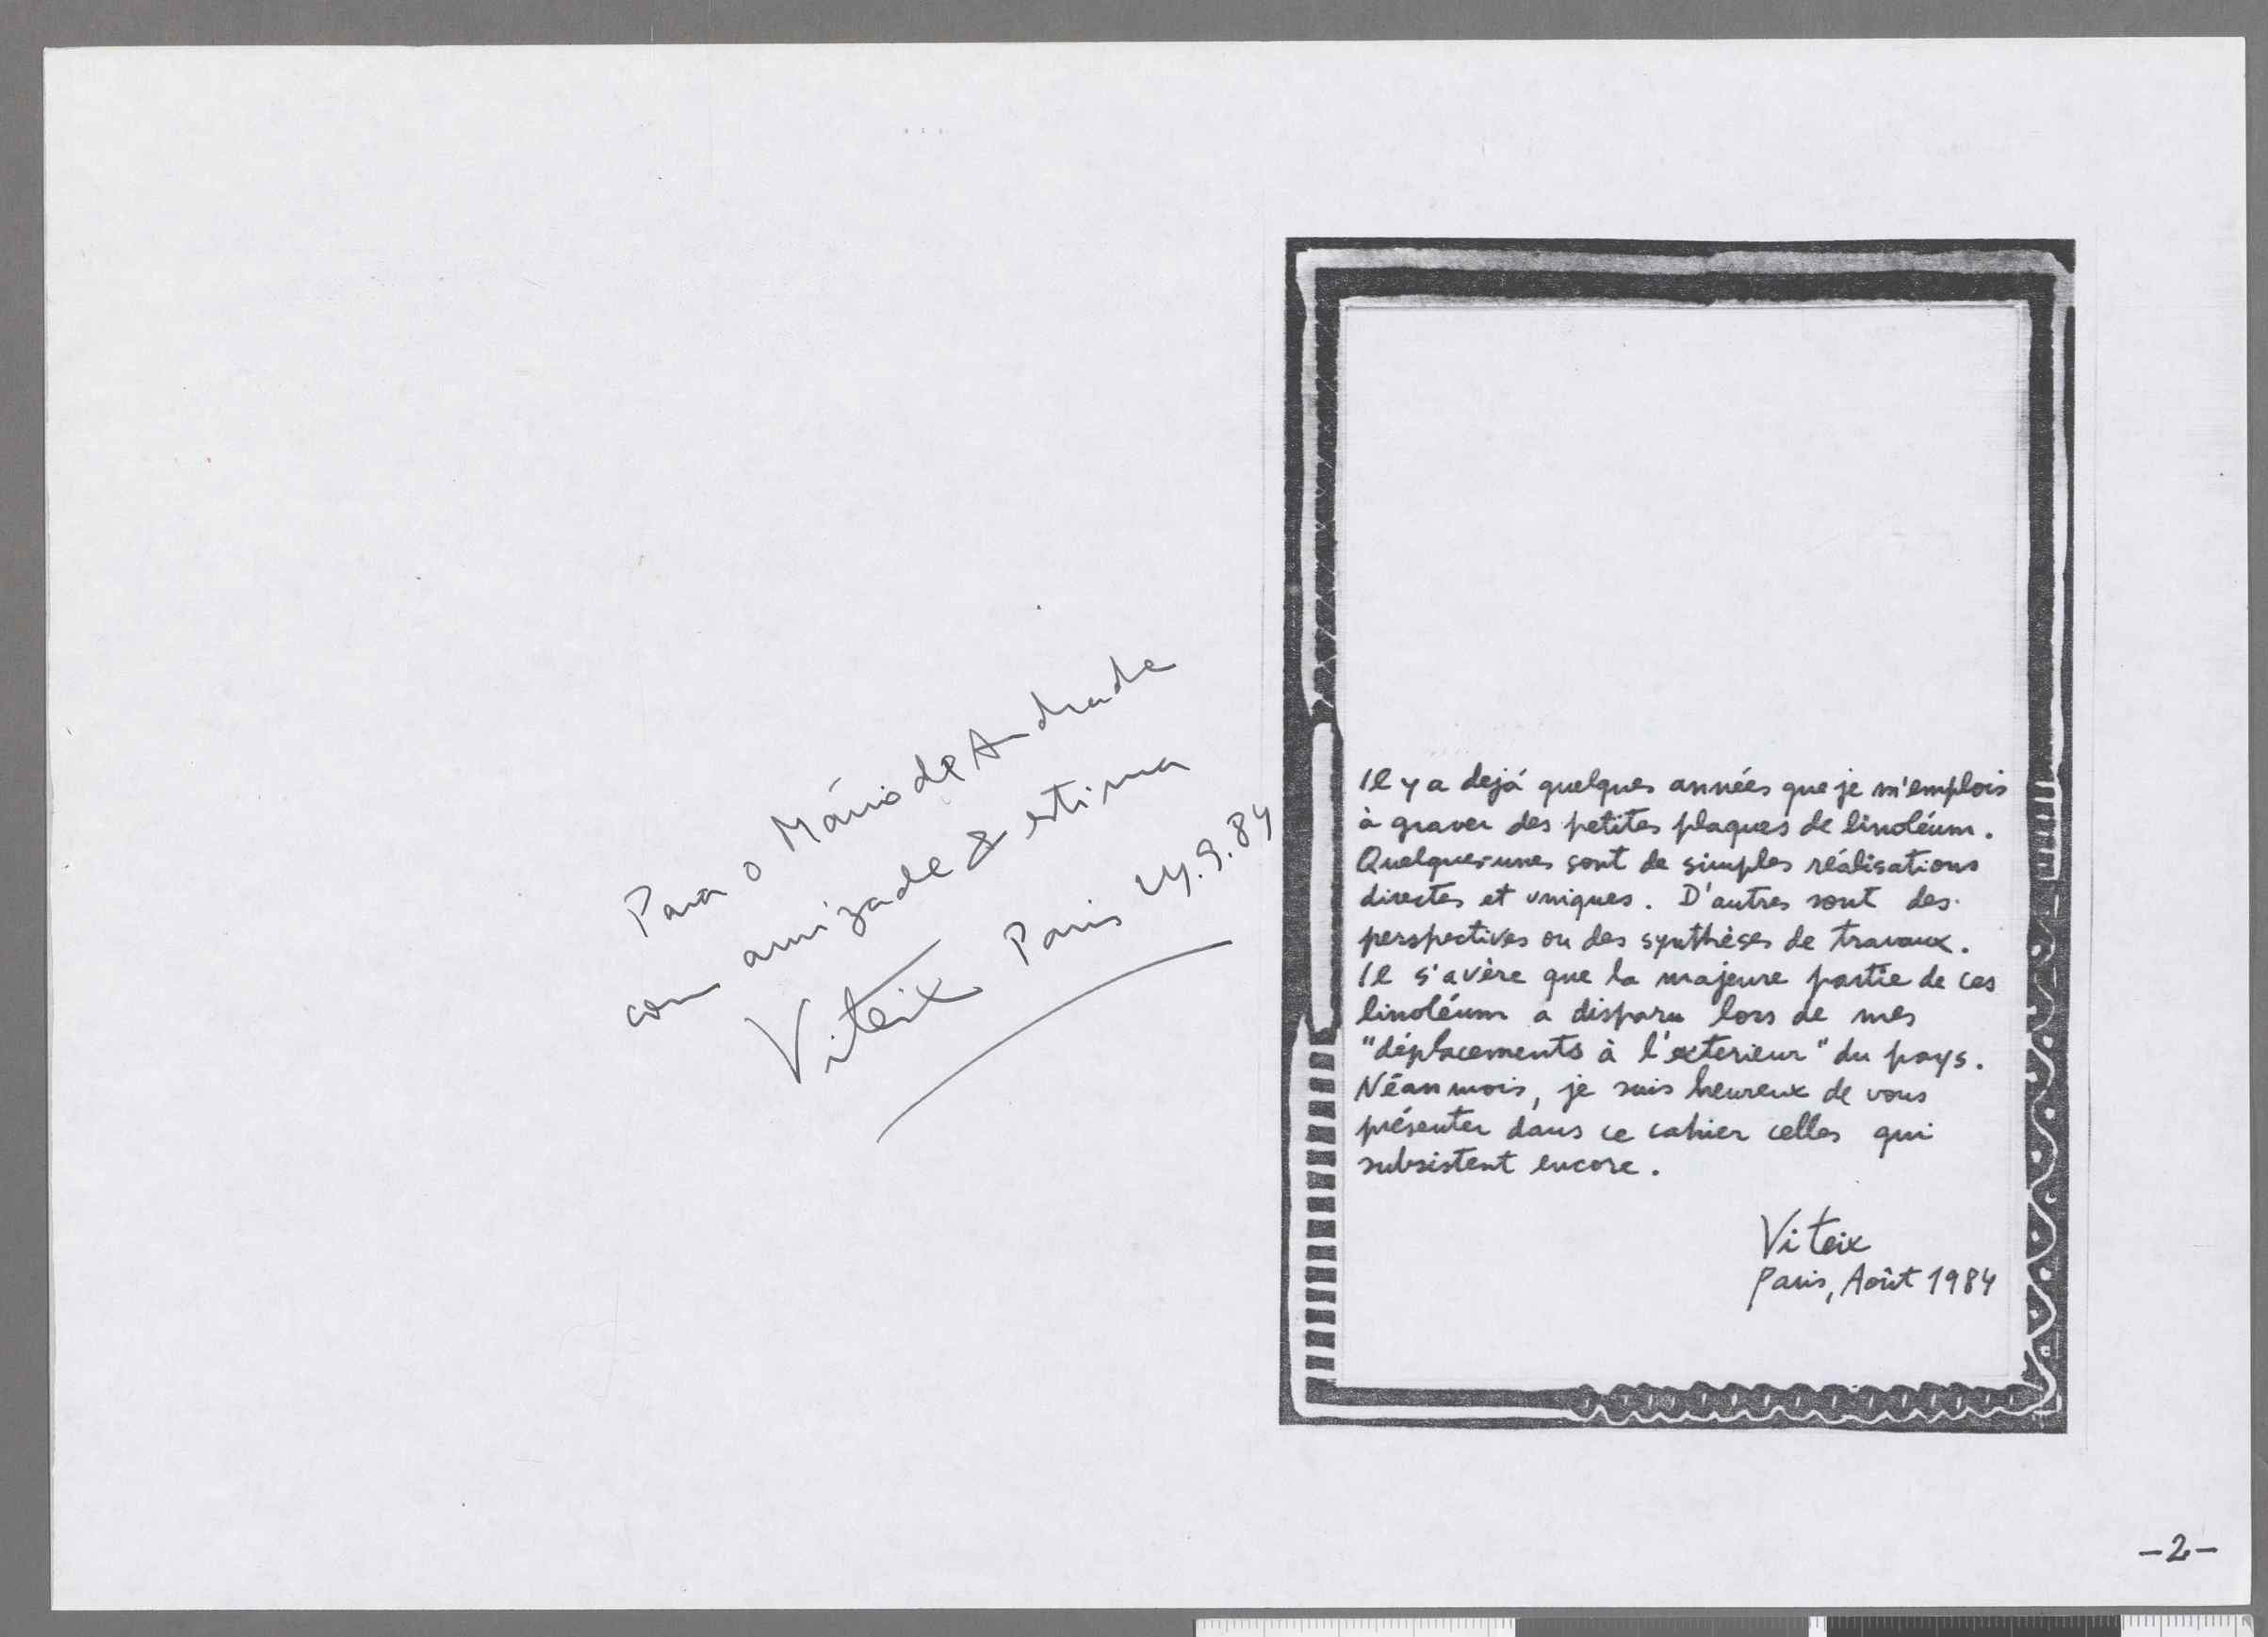 Para o Mário de Andrade
com amizade & estima
Viteix Paris 24.9.84
Il y a dejá quelques années que je m'emplois
à graver des petites plaques de linoléum.
Quelques-unes sont de simples réalisations
directes et uniques. D'autres sont des
perspectives ou des synthèses de travaux.
Il s'avère que la majeure partie de ces
linoléum a disparu lors de mes
"déplacements à l'exterieur" du pays.
Néanmois, je suis heureux de vous
présenter dans ce cahier celles qui
subsistent encore.
Viteix
Paris, Août 1984
-2-